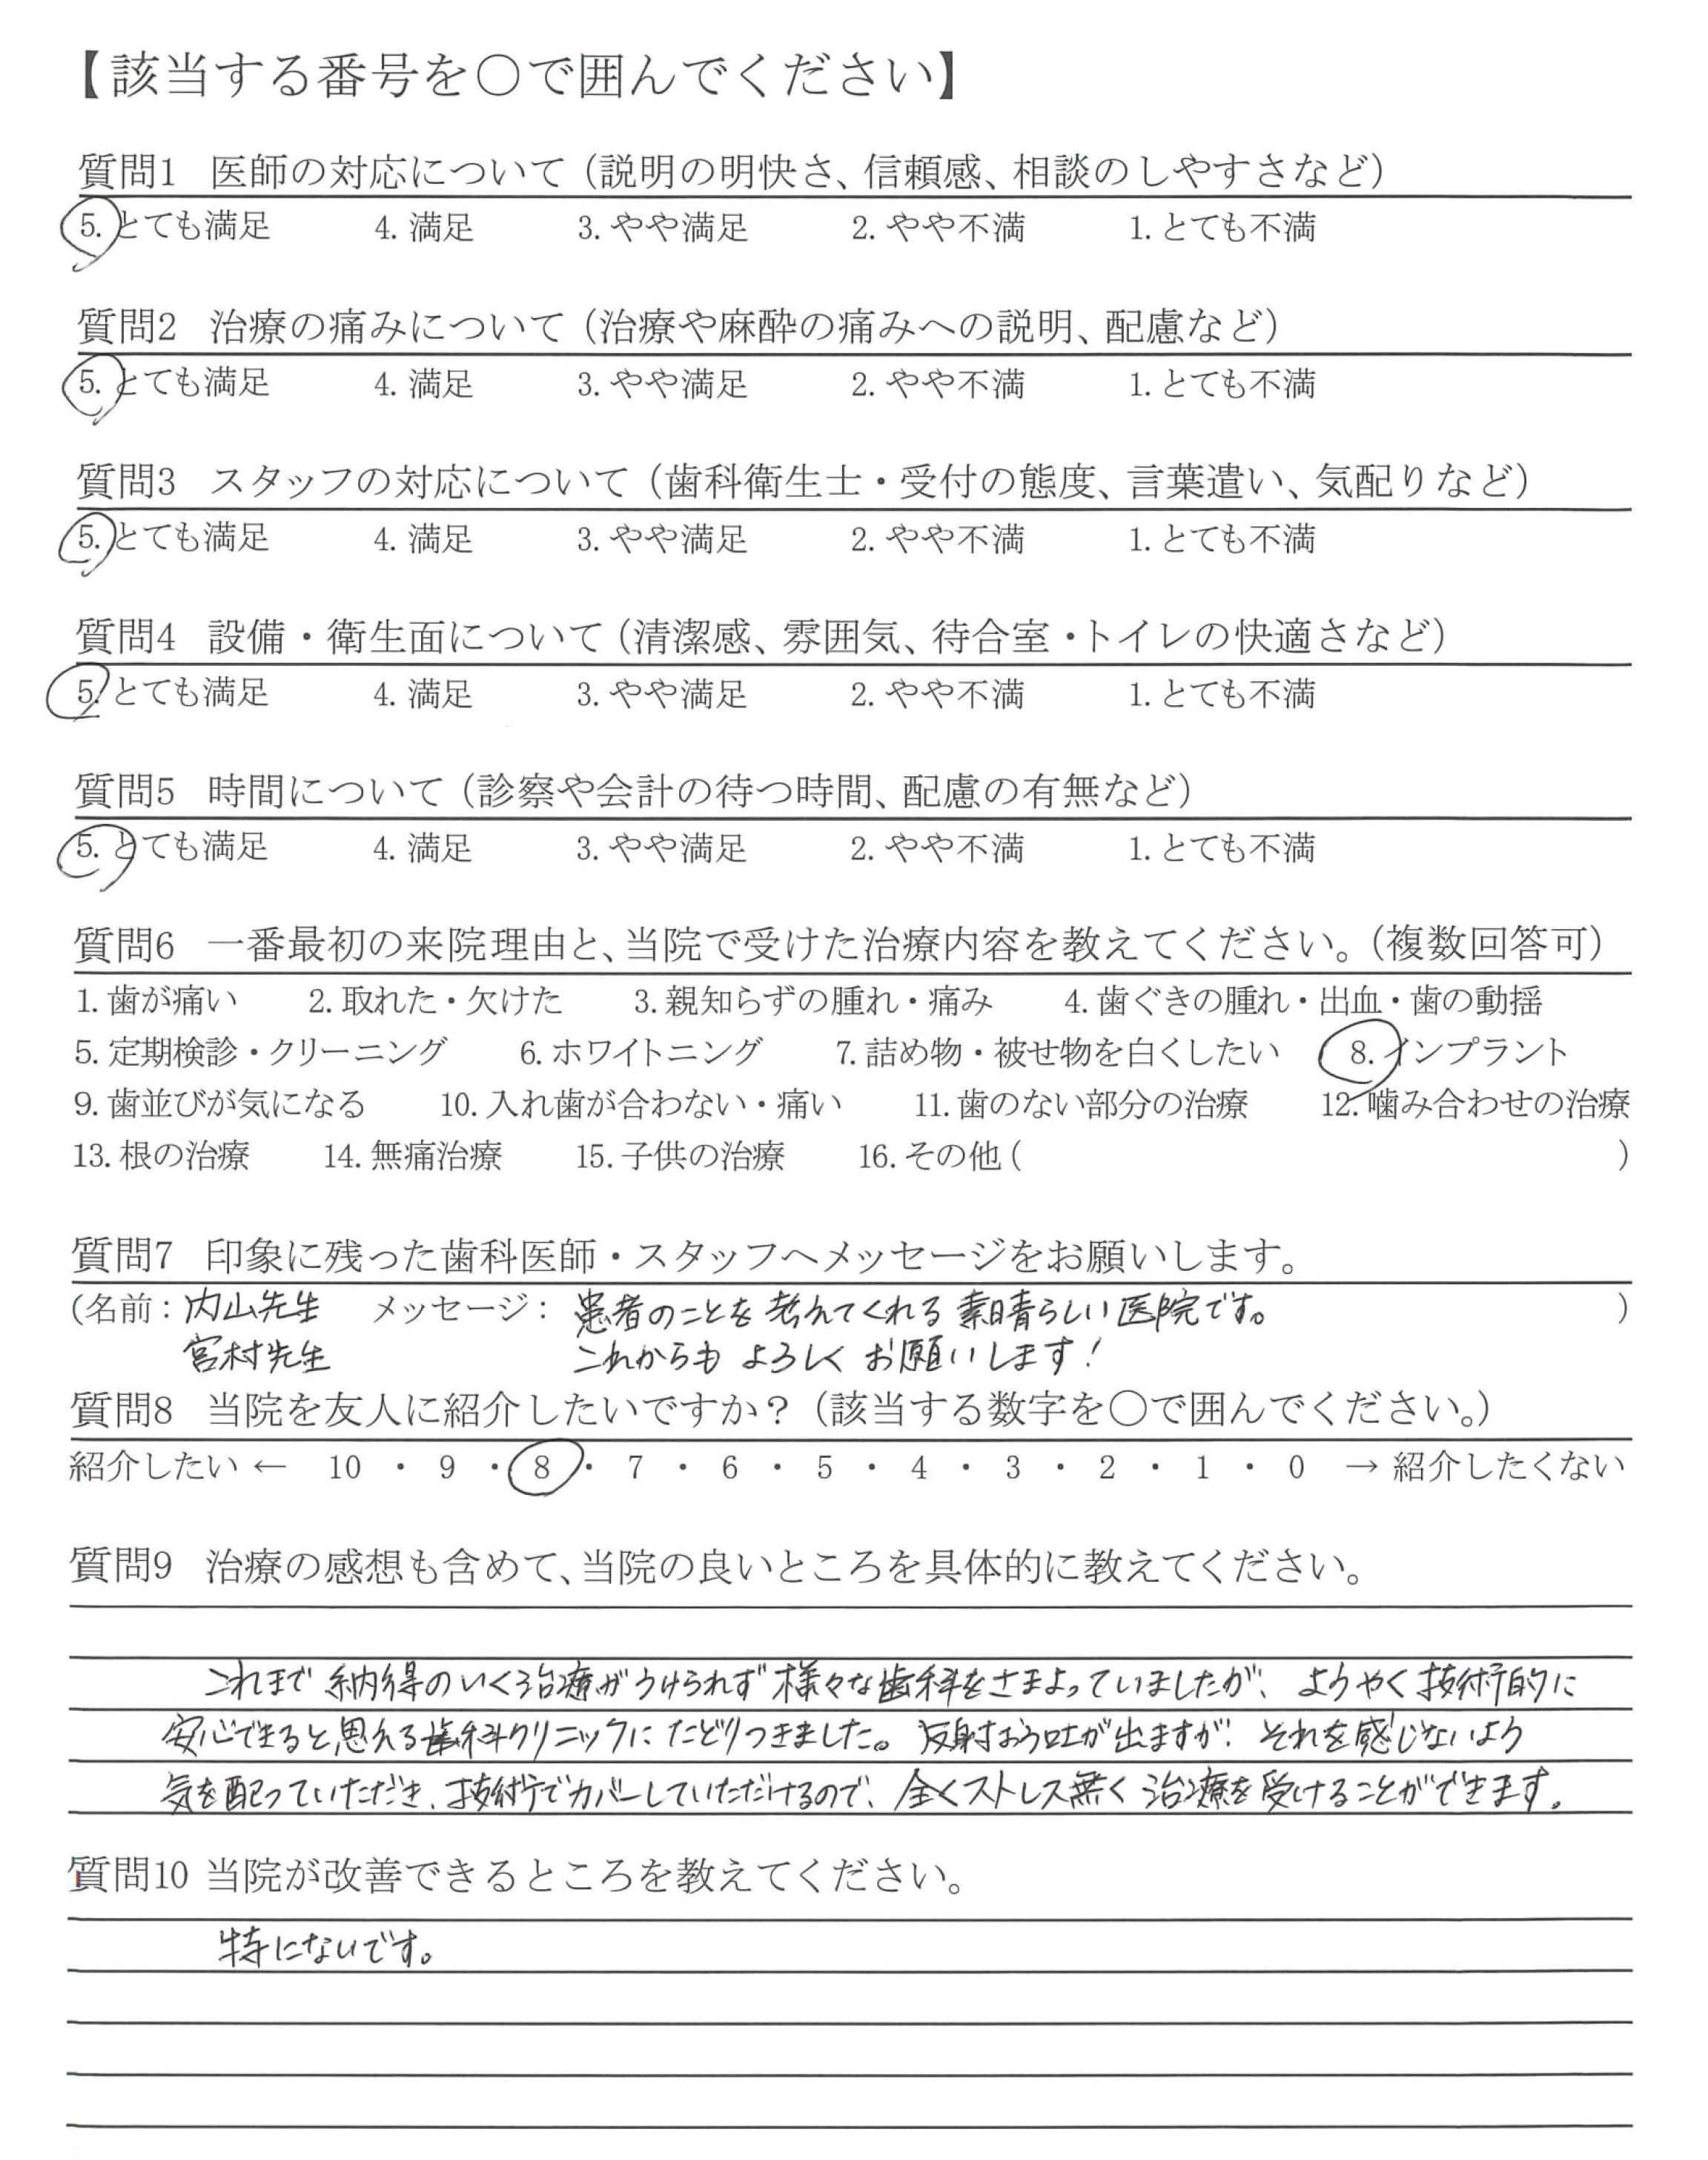 【該当する番号を〇で囲んでください】
質問1 医師の対応について（説明の明快さ、信頼感、相談のしやすさなど）
5. とても満足 4. 満足 3. やや満足 2. やや不満 1. とても不満
質問2 治療の痛みについて（治療や麻酔の痛みへの説明、配慮など）
5. とても満足 4. 満足 3. やや満足 2. やや不満 1. とても不満
質問3 スタッフの対応について（歯科衛生士・受付の態度、言葉遣い、気配りなど）
5. とても満足 4. 満足 3. やや満足 2. やや不満 1. とても不満
質問4 設備・衛生面について（清潔感、雰囲気、待合室・トイレの快適さなど）
5. とても満足 4. 満足 3. やや満足 2. やや不満 1. とても不満
質問5 時間について（診察や会計の待つ時間、配慮の有無など）
5. とても満足 4. 満足 3. やや満足 2. やや不満 1. とても不満
質問6 一番最初の来院理由と、当院で受けた治療内容を教えてください。（複数回答可）
1. 歯が痛い 2. 取れた・欠けた 3. 親知らずの腫れ・痛み 4. 歯ぐきの腫れ・出血・歯の動揺
5. 定期検診・クリーニング 6. ホワイトニング 7. 詰め物・被せ物を白くしたい 8. インプラント
9. 歯並びが気になる 10. 入れ歯が合わない・痛い 11. 歯のない部分の治療 12. 噛み合わせの治療
13. 根の治療 14. 無痛治療 15. 子供の治療 16. その他（ ）
質問7 印象に残った歯科医師・スタッフへメッセージをお願いします。
（名前：内山先生 メッセージ：患者のことを考えてくれる素晴らしい医院です。 ）
宮村先生 これからもよろしくお願いします！
質問8 当院を友人に紹介したいですか？（該当する数字を〇で囲んでください。）
紹介したい ← 10 ・ 9 ・ 8 ・ 7 ・ 6 ・ 5 ・ 4 ・ 3 ・ 2 ・ 1 ・ 0 → 紹介したくない
質問9 治療の感想も含めて、当院の良いところを具体的に教えてください。
これまで納得のいく治療がうけられず様々な歯科をさまよっていましたが、ようやく技術的に
安心できると思える歯科クリニックにたどりつきました。反射おう吐が出ますが、それを感じないよう
気を配っていただき、技術でカバーしていただけるので、全くストレス無く治療を受けることができます。
質問10 当院が改善できるところを教えてください。
特にないです。